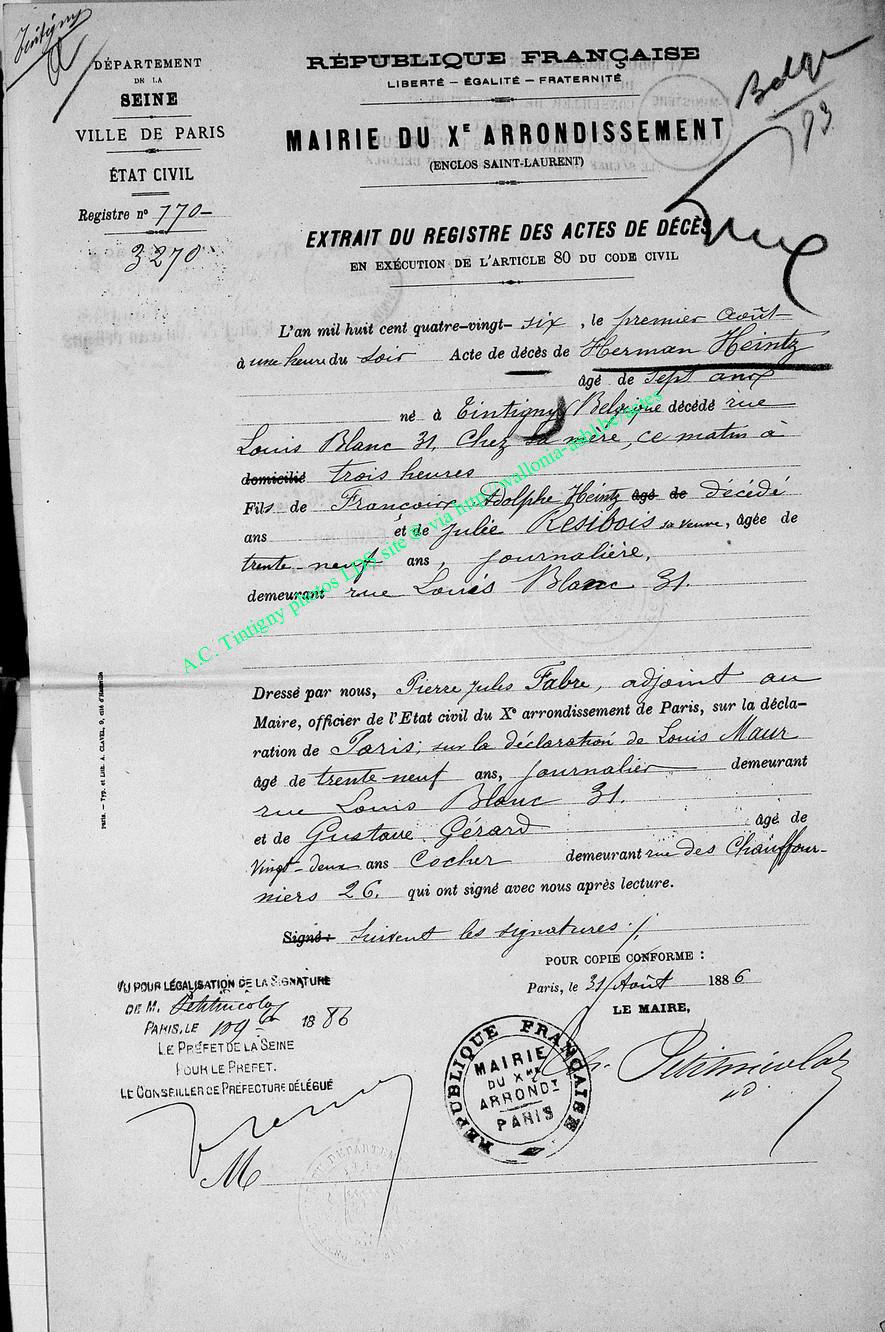 Tintigny
DÉPARTEMENT
DE LA
SEINE
VILLE DE PARIS
ÉTAT CIVIL
Registre nº 770-
3270
RÉPUBLIQUE FRANÇAISE
LIBERTÉ – ÉGALITÉ – FRATERNITÉ
MAIRIE DU Xᴱ ARRONDISSEMENT
(ENCLOS SAINT-LAURENT)
Belge
93
EXTRAIT DU REGISTRE DES ACTES DE DÉCÈS
EN EXÉCUTION DE L'ARTICLE 80 DU CODE CIVIL
L'an mil huit cent quatre-vingt- six, le premier Août
à une heure du soir Acte de décès de Herman Heintz
âgé de sept ans
né à Tintigny Belgique décédé rue
Louis Blanc 31, Chez sa mère, ce matin à
domicilié trois heures
Fils de François Adolphe Heintz âgé de décédé
ans et de Julie Resibois sa veuve, âgée de
trente-neuf ans, journalière,
demeurant rue Louis Blanc 31.
A.C. Tintigny photos LDS site @ via http://wallonia-asbl.be/sites
Dressé par nous, Pierre Jules Fabre, adjoint au
Maire, officier de l'Etat civil du Xᵉ arrondissement de Paris, sur la décla-
ration de Paris; sur la déclaration de Louis Maur
âgé de trente-neuf ans, journalier demeurant
rue Louis Blanc 31.
et de Gustave Gérard âgé de
Vingt-deux ans Cocher demeurant rue des Chauffour-
niers 26. qui ont signé avec nous après lecture.
Signé: Suivent les signatures ./.
POUR COPIE CONFORME :
Paris, le 31 Août 1886
LE MAIRE,
Paris. — Typ. et Lith. A. CLAVEL, 9, cité d'Hauteville
VU POUR LÉGALISATION DE LA SIGNATURE
DE M. Petitnicolas
PARIS, LE 1886
LE PRÉFET DE LA SEINE
POUR LE PRÉFET.
LE CONSEILLER DE PRÉFECTURE DÉLÉGUÉ
RÉPUBLIQUE FRANÇAISE
MAIRIE
DU Xᴹᴱ
ARRONDᵀ
PARIS
Petitnicolas
M